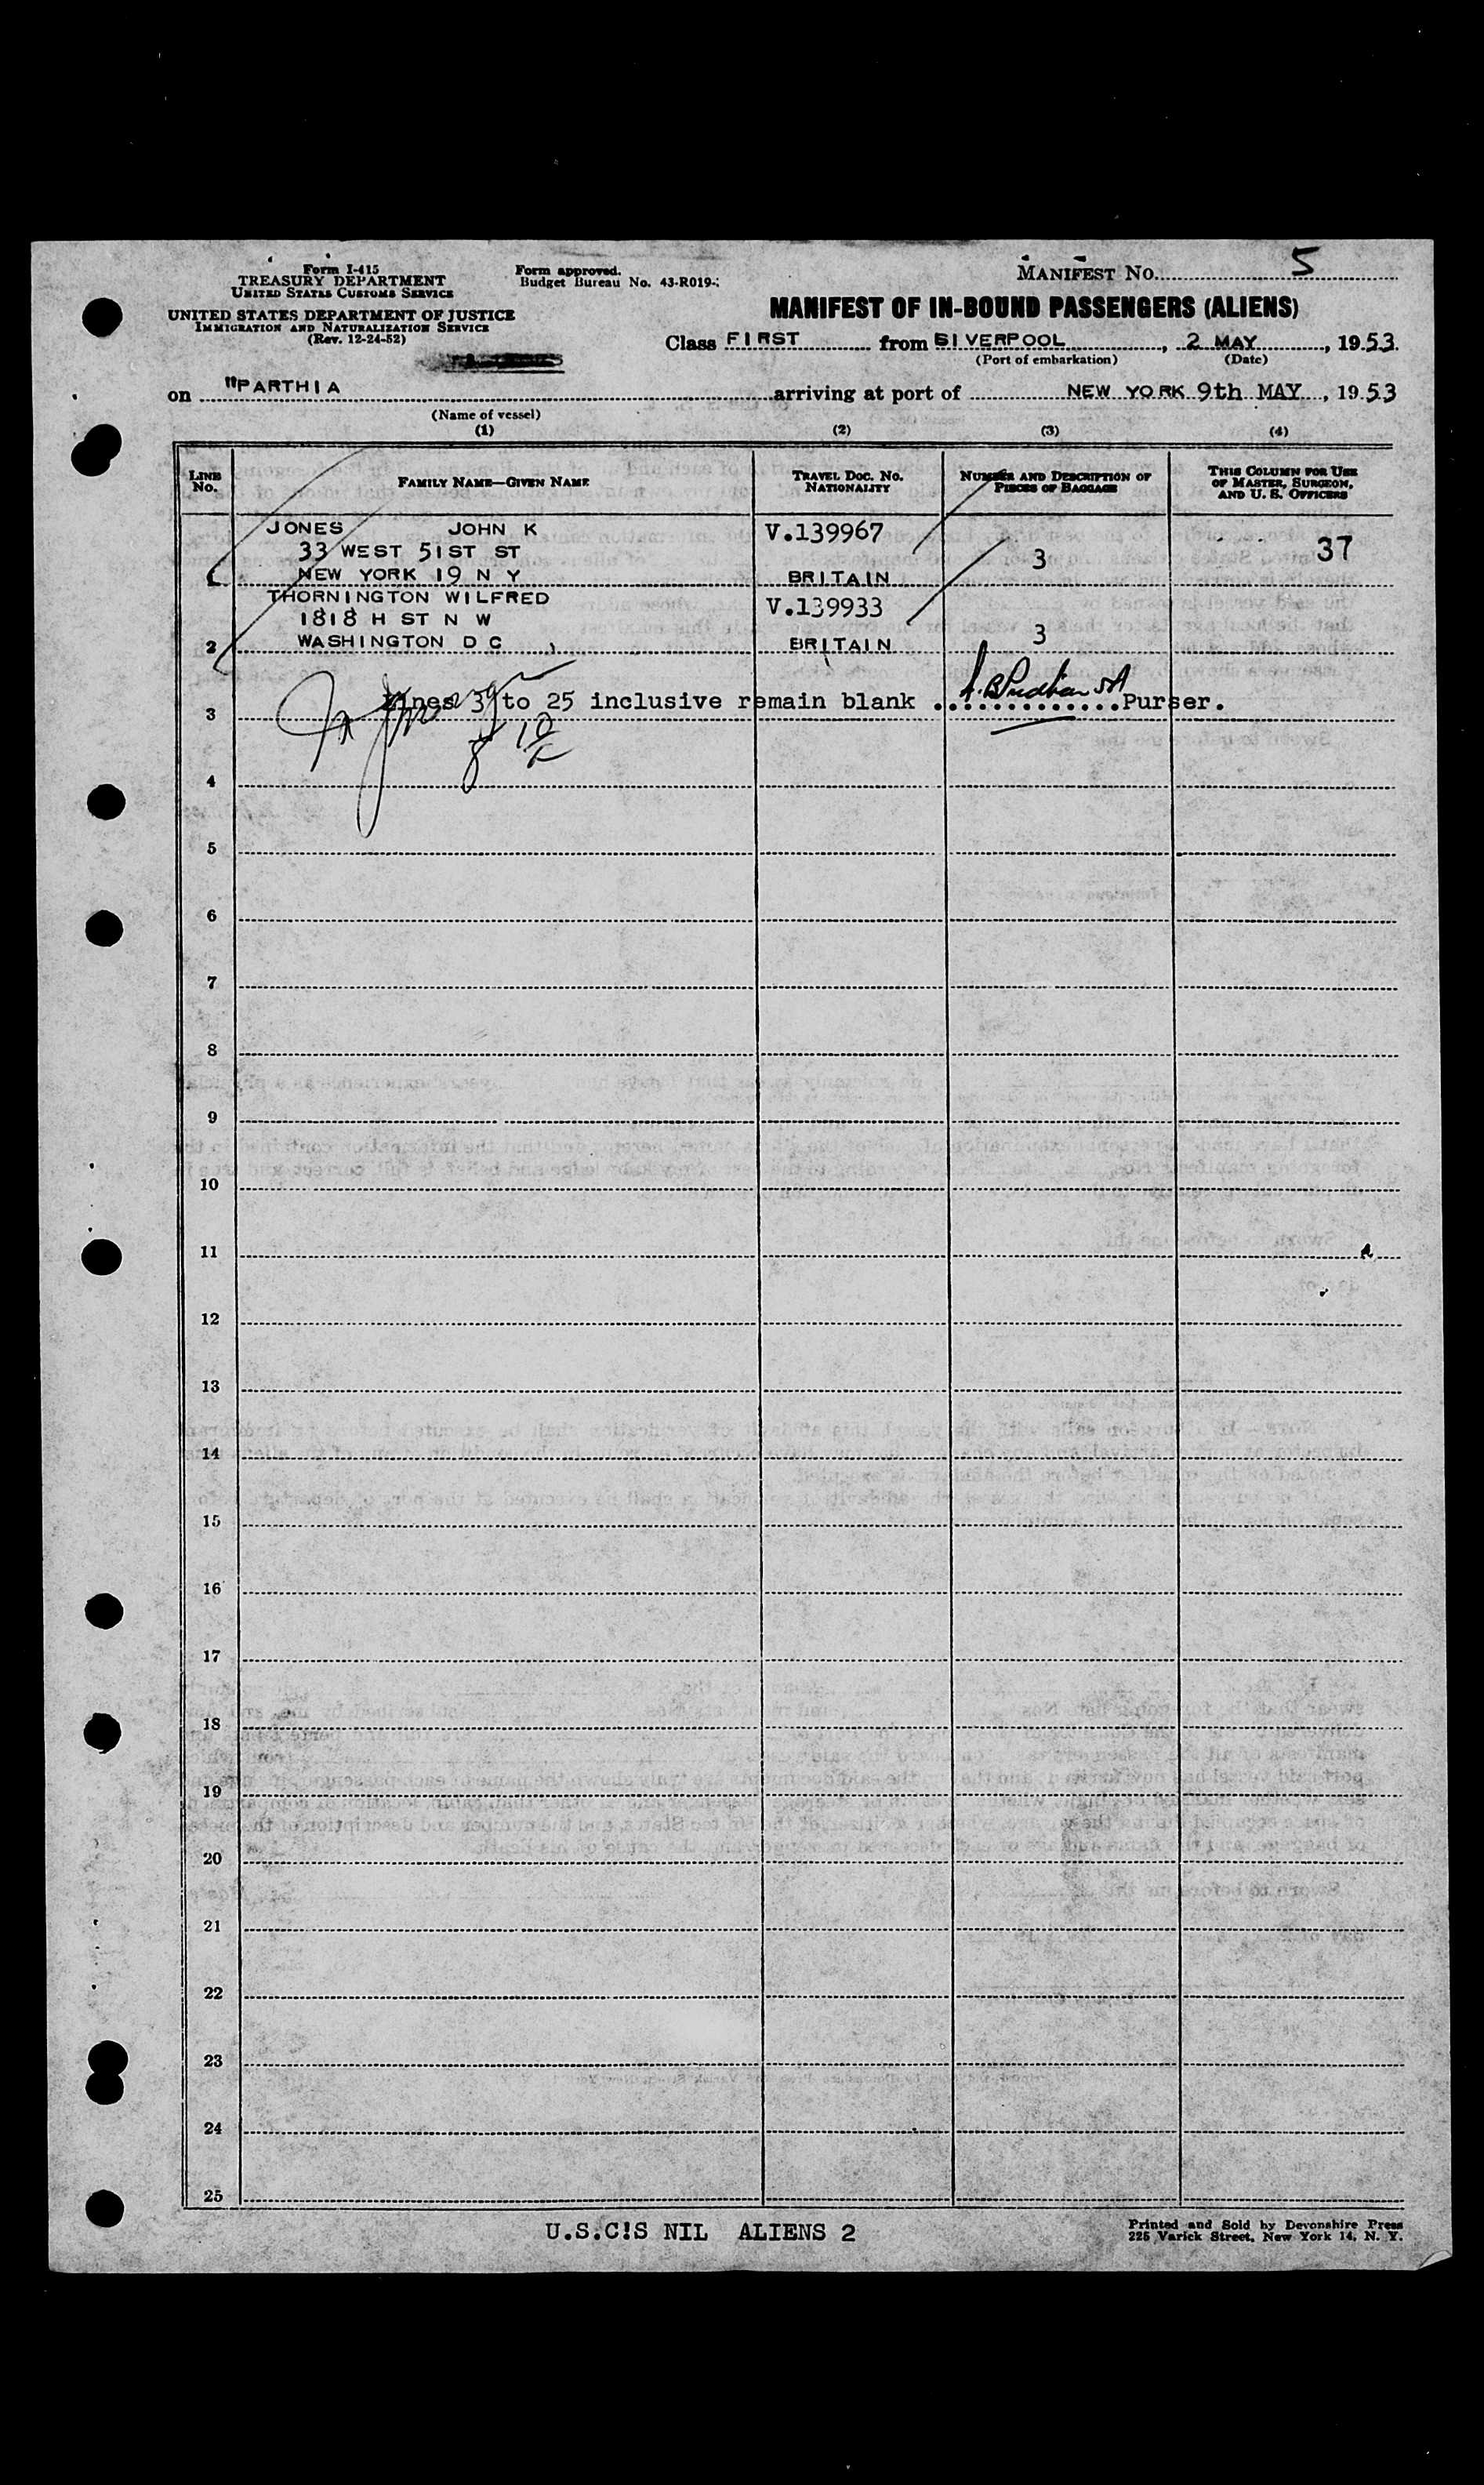 Form I-415
TREASURY DEPARTMENT
UNITED STATES CUSTOMS SERVICE
UNITED STATES DEPARTMENT OF JUSTICE
IMMIGRATION AND NATURALIZATION SERVICE
(Rev. 12-24-52)
Form approved.
Budget Bureau No. 43-R019-
MANIFEST NO. 5
MANIFEST OF IN-BOUND PASSENGERS (ALIENS)
Class FIRST from LIVERPOOL, 2 MAY, 1953.
(Port of embarkation) (Date)
on "PARTHIA arriving at port of NEW YORK 9th MAY, 1953
(Name of vessel)
(1) (2) (3) (4)
LINE NO. FAMILY NAME—GIVEN NAME TRAVEL DOC. NO. NATIONALITY NUMBER AND DESCRIPTION OF PIECES OF BAGGAGE THIS COLUMN FOR USE OF MASTER, SURGEON, AND U. S. OFFICERS
JONES JOHN K V.139967
33 WEST 51ST ST 3 37
NEW YORK 19 N Y BRITAIN
THORNINGTON WILFRED V.139933
1818 H ST N W 3
2 WASHINGTON D C BRITAIN
3 Lines 3 to 25 inclusive remain blank .............Purser.
4
5
6
7
8
9
10
11
12
13
14
15
16
17
18
19
20
21
22
23
24
25
U.S.C!S NIL ALIENS 2
Printed and Sold by Devonshire Press
225 Varick Street, New York 14, N. Y.